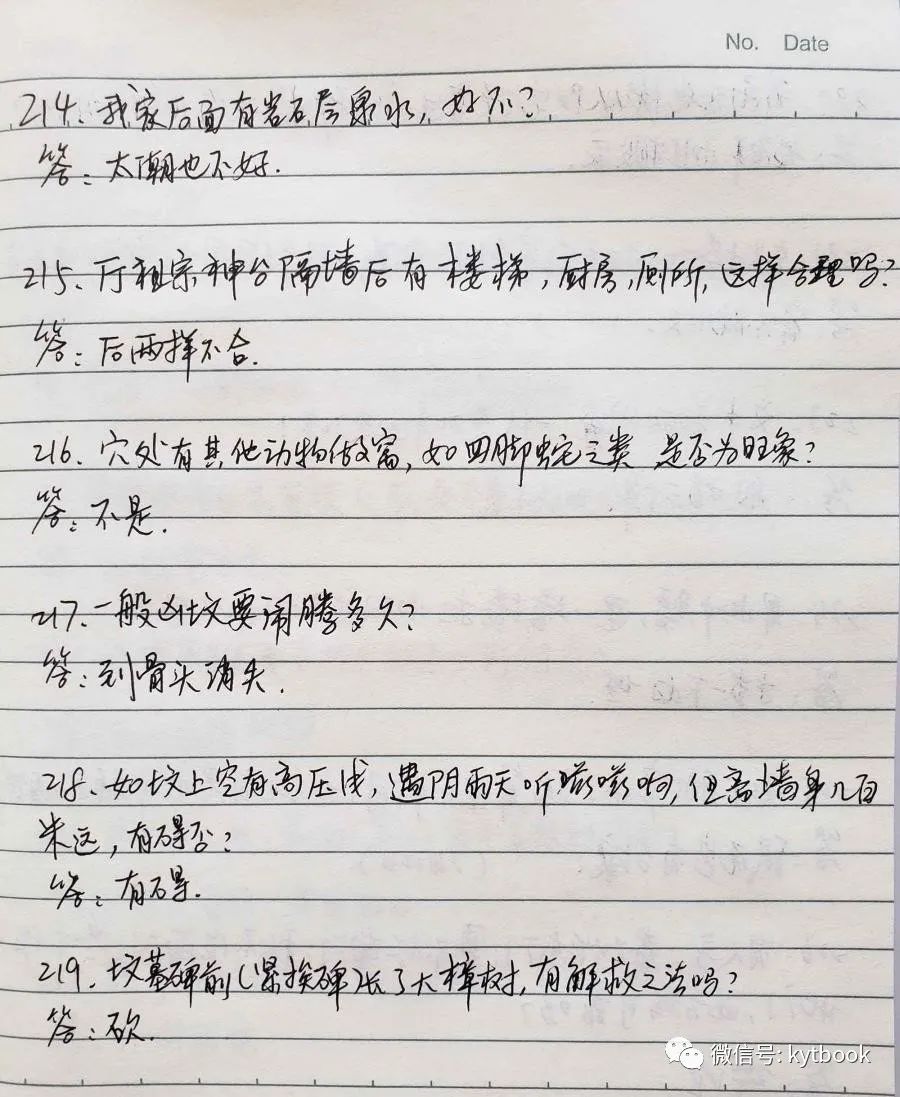 No. Date
214、我家后面有岩石层泉水, 好不?
答: 太潮也不好.
215、厅祖宗神台隔墙后有楼梯, 厨房, 厕所, 这样合理吗?
答: 后两样不合.
216、穴处有其他动物做窝, 如四脚蛇之类 是否为旺象?
答: 不是.
217、一般凶坟要闹腾多久?
答: 到骨头消失.
218、如坟上空有高压线, 遇阴雨天听嗞嗞响, 但离墙身几百
米远, 有碍否?
答: 有碍.
219、坟墓碑前(紧挨碑)长了大樟树, 有解救之法吗?
答: 砍.
微信号: kytbook